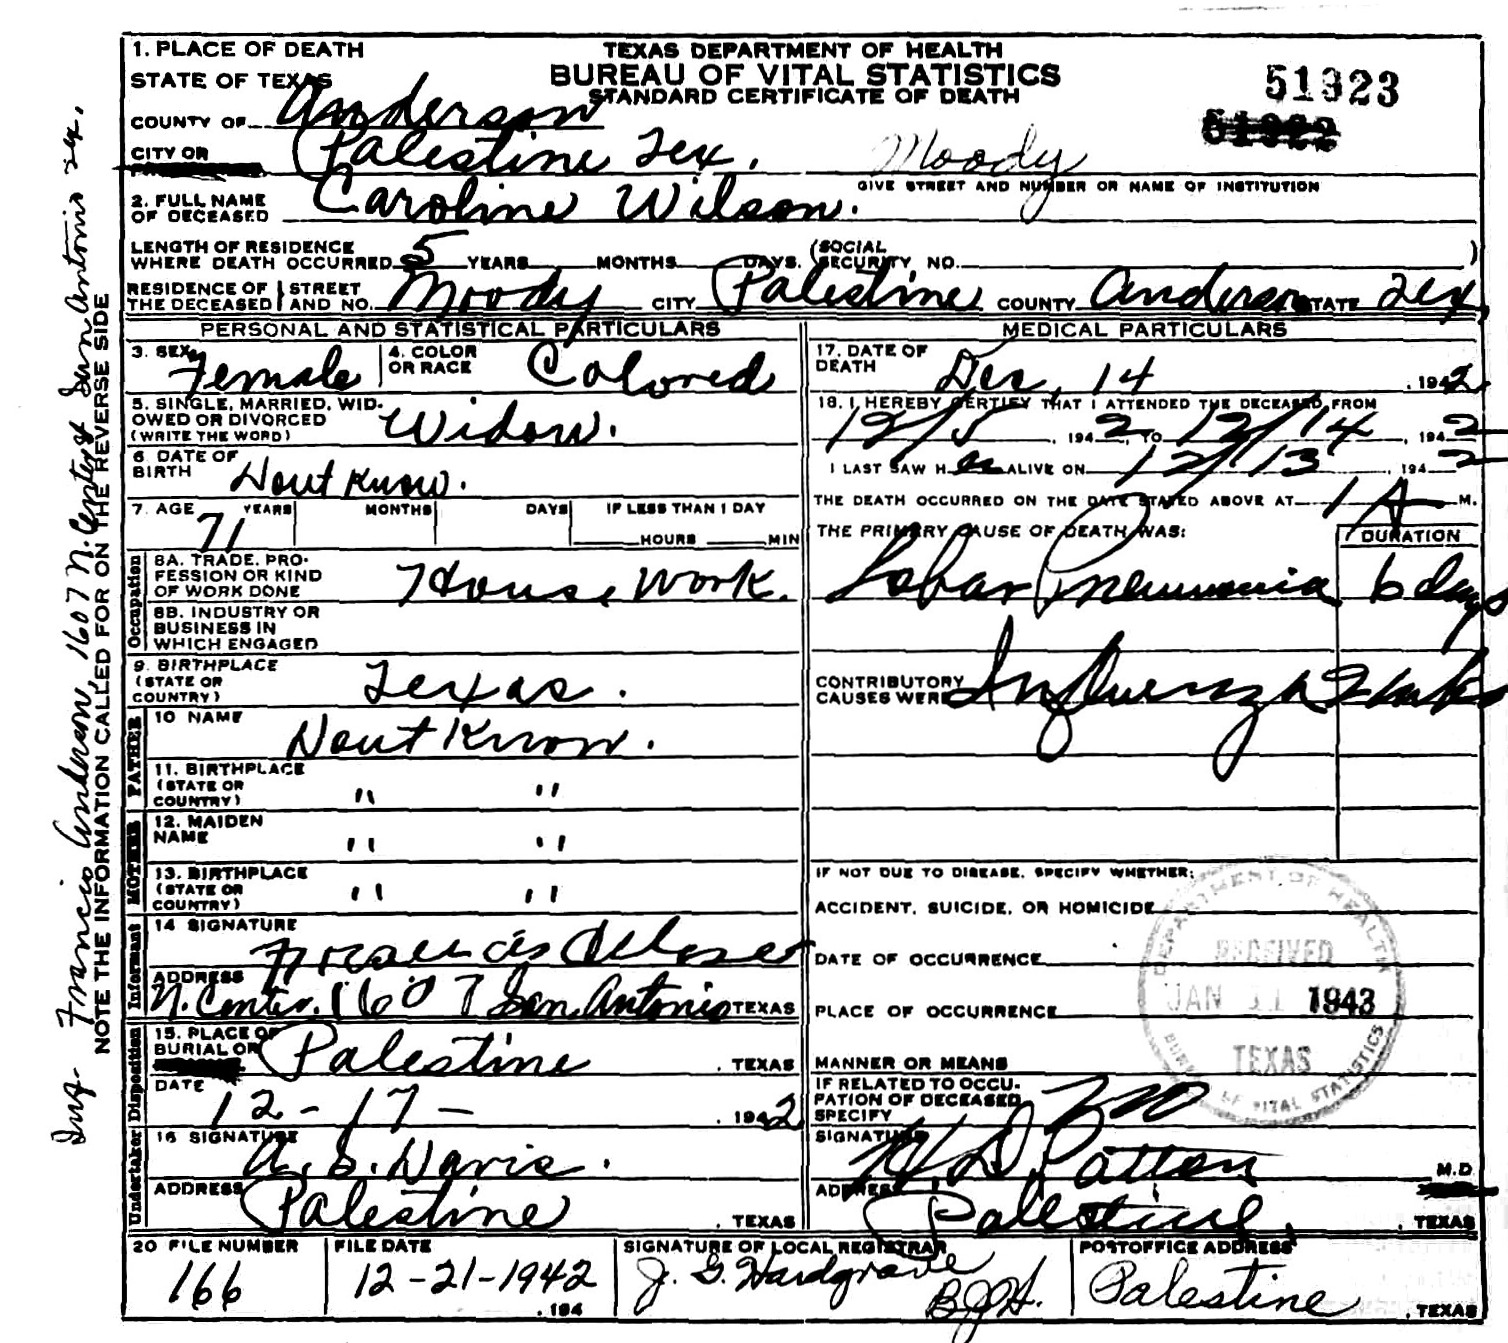 TEXAS DEPARTMENT OF HEALTH
BUREAU OF VITAL STATISTICS
STANDARD CERTIFICATE OF DEATH
51923
51922
1. PLACE OF DEATH
STATE OF TEXAS
COUNTY OF Anderson
CITY OR Palestine Tex. Moody
GIVE STREET AND NUMBER OR NAME OF INSTITUTION
2. FULL NAME OF DECEASED Caroline Wilson.
LENGTH OF RESIDENCE WHERE DEATH OCCURRED 5 YEARS MONTHS DAYS. (SOCIAL SECURITY NO. )
RESIDENCE OF THE DECEASED STREET AND NO. Moody CITY Palestine COUNTY Anderson STATE Tex
PERSONAL AND STATISTICAL PARTICULARS
3. SEX Female 4. COLOR OR RACE Colored
5. SINGLE, MARRIED, WIDOWED OR DIVORCED (WRITE THE WORD) Widow.
6. DATE OF BIRTH Dont Know.
7. AGE 71 YEARS MONTHS DAYS IF LESS THAN 1 DAY HOURS MIN
Occupation
8A. TRADE, PROFESSION OR KIND OF WORK DONE House Work.
8B. INDUSTRY OR BUSINESS IN WHICH ENGAGED
9. BIRTHPLACE (STATE OR COUNTRY) Texas.
FATHER
10 NAME Dont Know.
11. BIRTHPLACE (STATE OR COUNTRY) " "
MOTHER
12. MAIDEN NAME " "
13. BIRTHPLACE (STATE OR COUNTRY) " "
Informant
14 SIGNATURE Francis
ADDRESS N. Center. 1607 San Antonio TEXAS
Disposition
15. PLACE OF BURIAL OR Palestine , TEXAS
DATE 12-17- , 1942
Undertaker
16 SIGNATURE A. S. Davis.
ADDRESS Palestine , TEXAS
MEDICAL PARTICULARS
17. DATE OF DEATH Dec, 14 , 1942
18. I HEREBY CERTIFY THAT I ATTENDED THE DECEASED FROM
12/5 , 1942, TO 12/14 , 1942
I LAST SAW H er ALIVE ON 12/13 , 1942
THE DEATH OCCURRED ON THE DATE STATED ABOVE AT 1 A M.
THE PRIMARY CAUSE OF DEATH WAS: DURATION
Lobar Pneumonia 6 days
CONTRIBUTORY CAUSES WERE Influenza 2
IF NOT DUE TO DISEASE, SPECIFY WHETHER:
ACCIDENT, SUICIDE, OR HOMICIDE
DATE OF OCCURRENCE
PLACE OF OCCURRENCE
MANNER OR MEANS
IF RELATED TO OCCUPATION OF DECEASED SPECIFY no
SIGNATURE H D Patton M.D.
ADDRESS Palestine, , TEXAS
DEPARTMENT OF HEALTH
RECEIVED
JAN 11 1943
TEXAS
BUREAU OF VITAL STATISTICS
20 FILE NUMBER 166
FILE DATE 12-21-1942 , 194
SIGNATURE OF LOCAL REGISTRAR J. G. Hardgrave BJH.
POSTOFFICE ADDRESS Palestine , TEXAS
Inf- Francis Anderson, 1607 N. Center St San Antonio Tex.
NOTE THE INFORMATION CALLED FOR ON THE REVERSE SIDE